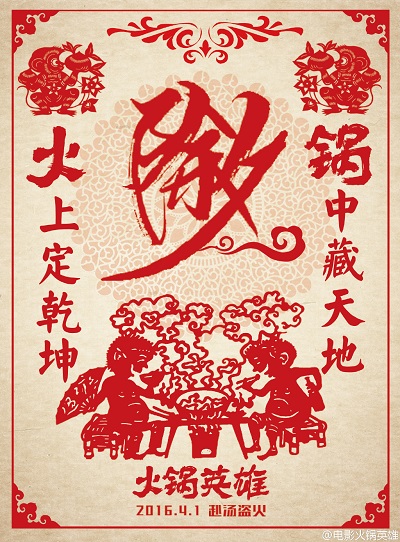 除夕
火上定乾坤
锅中藏天地
火锅英雄
2016.4.1 赴汤盗火
@电影火锅英雄